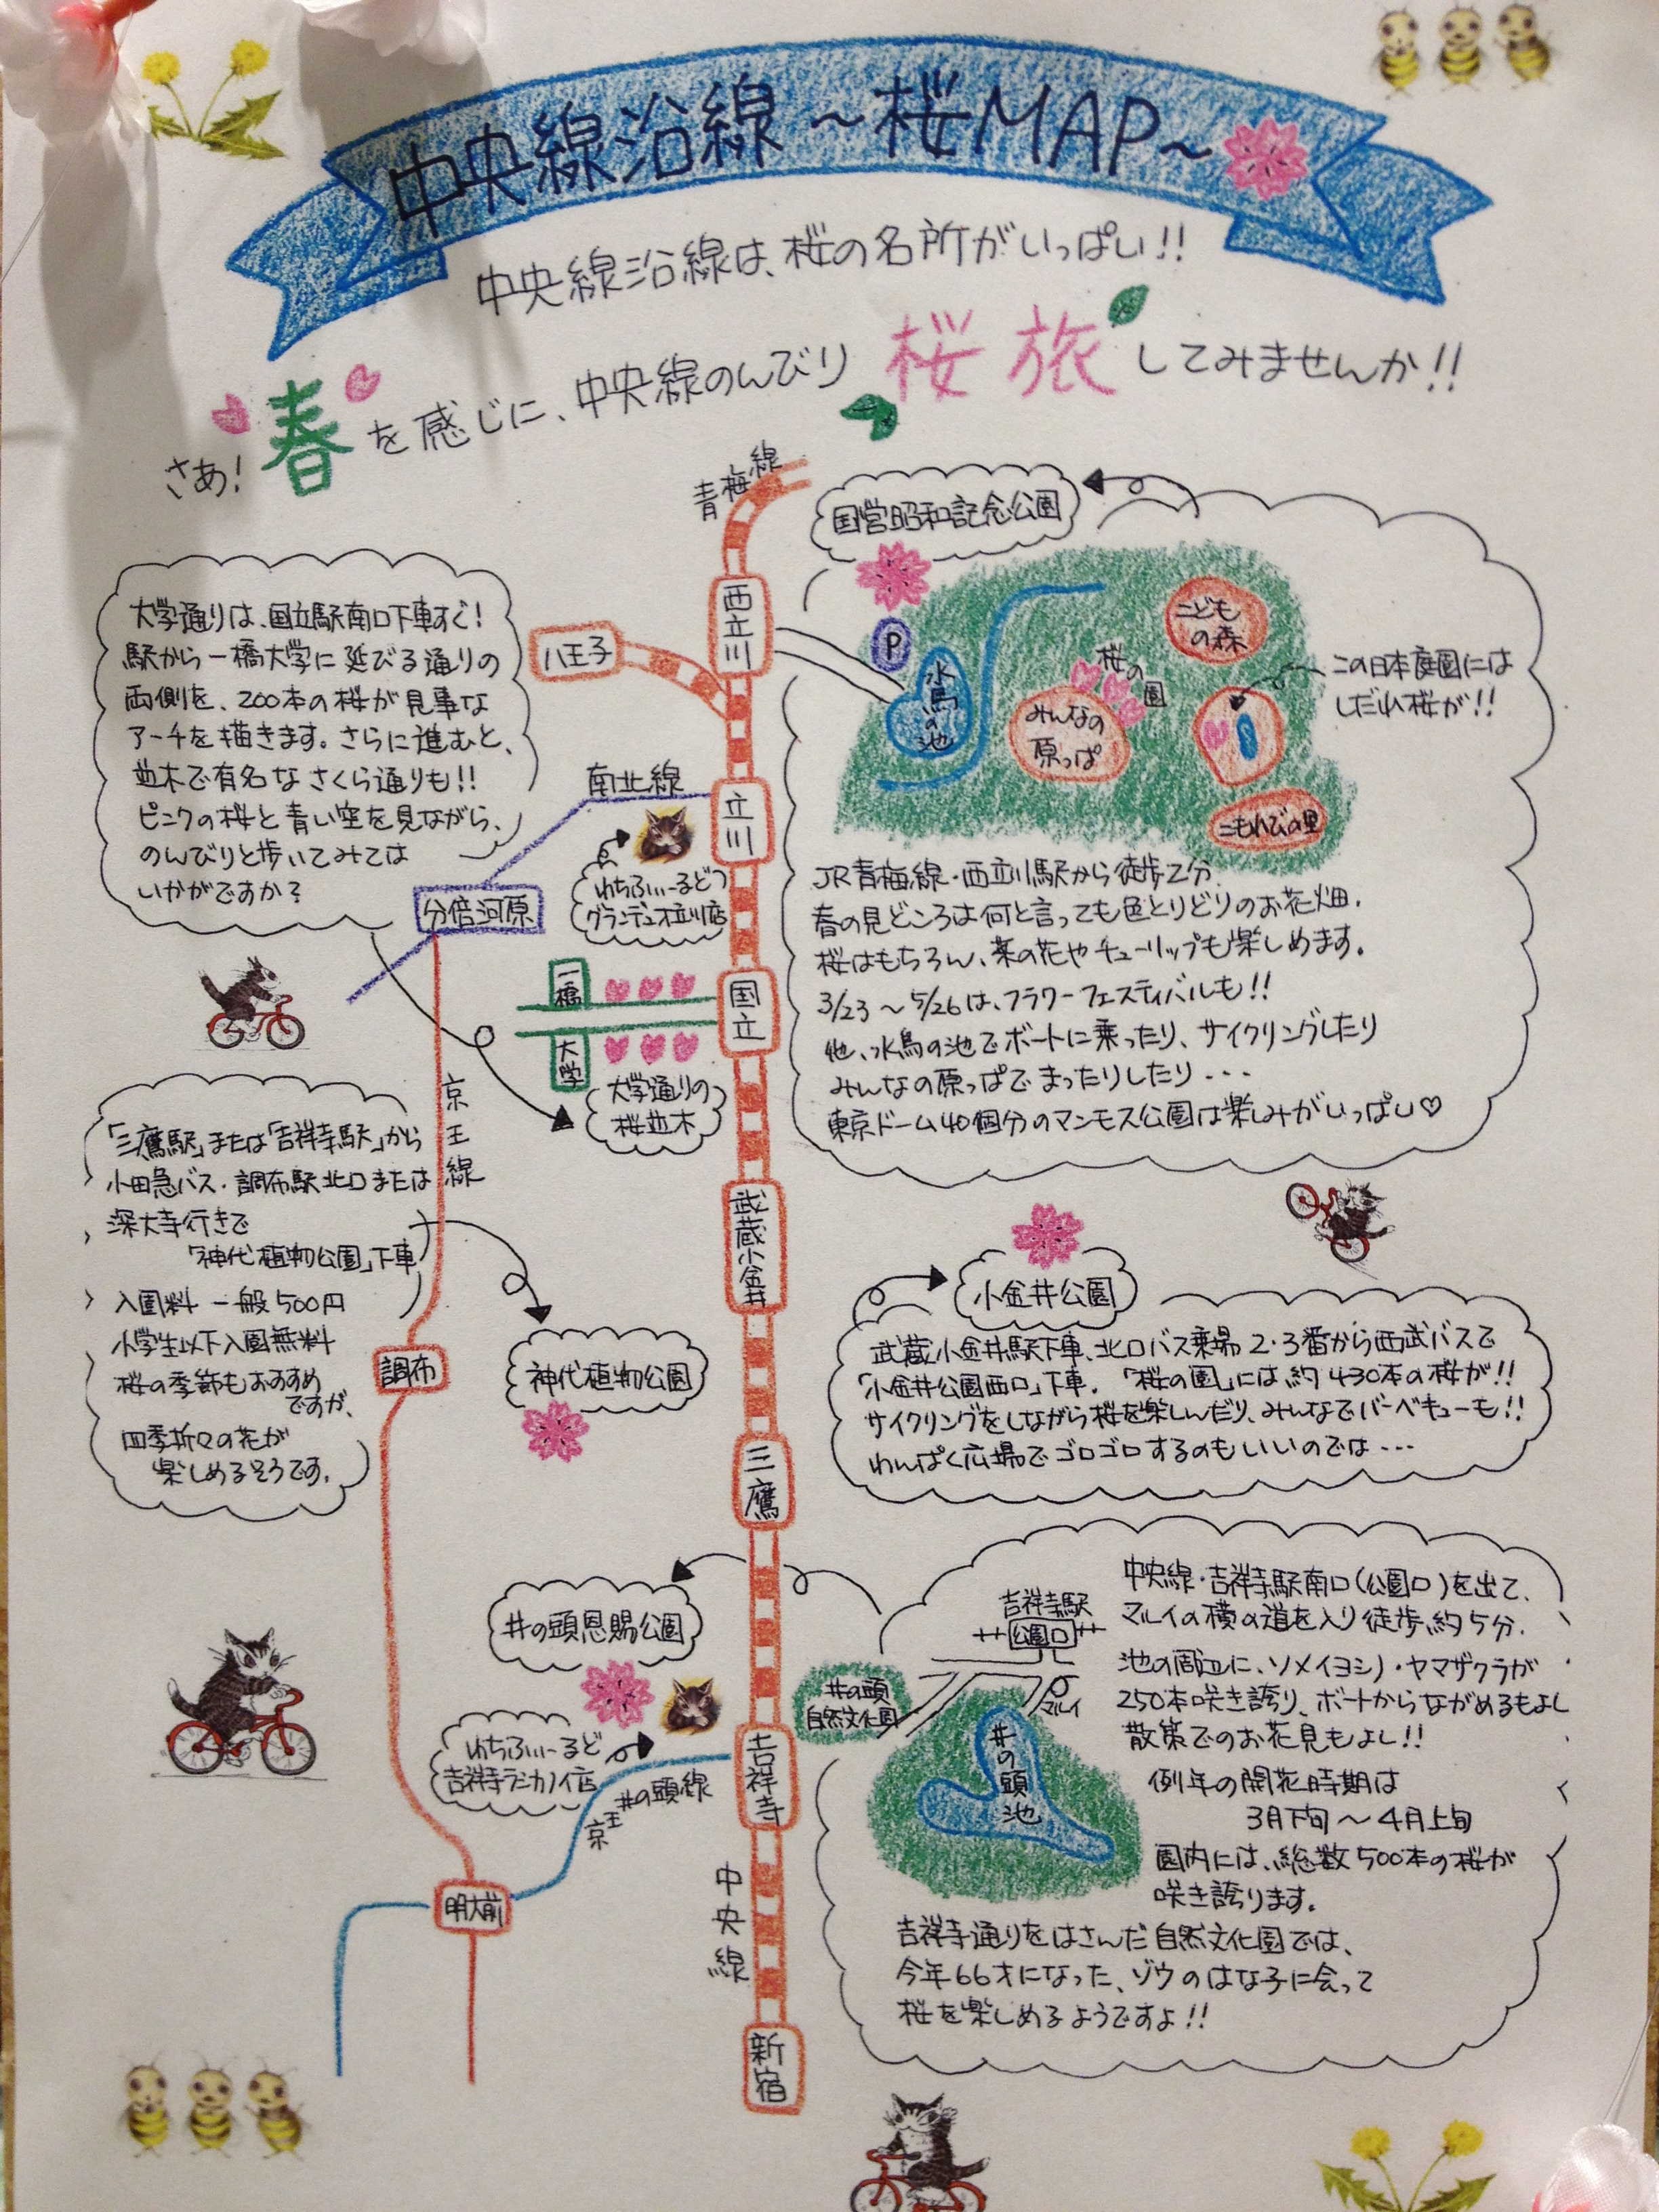 中央線沿線～桜MAP～
中央線沿線は、桜の名所がいっぱい!!
さあ!春を感じに、中央線のんびり桜旅してみませんか!!
青梅線
西立川
八王子
立川
国立
武蔵小金井
三鷹
吉祥寺
中央線
新宿
大学通りは、国立駅南口下車すぐ!
駅から一橋大学に延びる通りの
両側を、200本の桜が見事な
アーチを描きます。さらに進むと、
並木で有名なさくら通りも!!
ピンクの桜と青い空を見ながら、
のんびりと歩いてみては
いかがですか?
南北線
分倍河原
わちふぃーるど
グランデュオ立川店
一橋
大学
大学通りの
桜並木
京王線
「三鷹駅」または「吉祥寺駅」から
小田急バス・調布駅北口または
深大寺行きで
「神代植物公園」下車
入園料 一般500円
小学生以下入園無料
桜の季節もおすすめ
ですが、
四季折々の花が
楽しめるそうです。
調布
神代植物公園
井の頭恩賜公園
わちふぃーるど
吉祥寺
京王井の頭線
明大前
国営昭和記念公園
P
水鳥の池
こども
の森
桜の園
みんなの
原っぱ
この日本庭園には
しだれ桜が!!
こもれびの里
JR青梅線・西立川駅から徒歩2分.
春の見どころは何と言っても色とりどりのお花畑.
桜はもちろん、菜の花やチューリップも楽しめます.
3/23～5/26は、フラワーフェスティバルも!!
他、水鳥の池でボートに乗ったり、サイクリングしたり
みんなの原っぱでまったりしたり・・・
東京ドーム40個分のマンモス公園は楽しみがいっぱい♡
小金井公園
武蔵小金井駅下車、北口バス乗場2・3番から西武バスで
「小金井公園西口」下車.「桜の園」には約430本の桜が!!
サイクリングをしながら桜を楽しんだり、みんなでバーベキューも!!
わんぱく広場でゴロゴロするのもいいのでは・・・
吉祥寺駅
公園口
マルイ
井の頭
自然文化園
井の頭池
中央線・吉祥寺駅南口(公園口)を出て、
マルイの横の道を入り徒歩約5分.
池の周辺に、ソメイヨシノ・ヤマザクラが
250本咲き誇り、ボートからながめるもよし
散策でのお花見もよし!!
例年の開花時期は
3月下旬～4月上旬
園内には、総数500本の桜が
咲き誇ります.
吉祥寺通りをはさんだ自然文化園では、
今年66才になった、ゾウのはな子に会って
桜を楽しめるようですよ!!